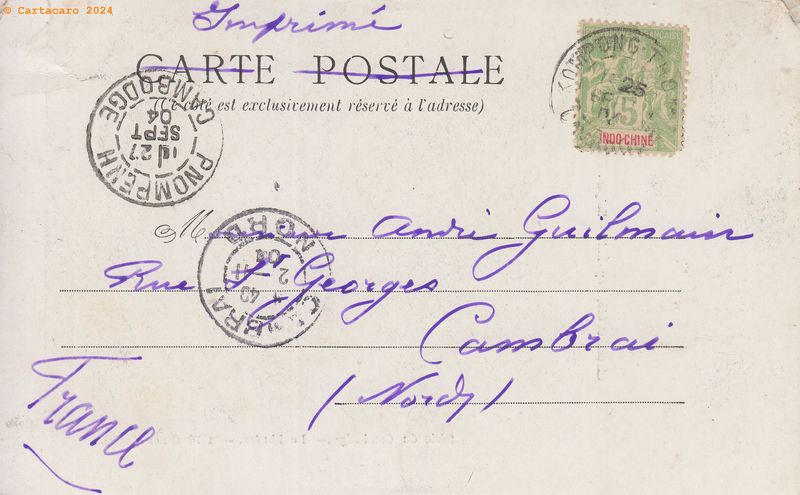 © Cartacaro 2024
Imprimé
CARTE POSTALE
(Ce côté est exclusivement réservé à l'adresse)
KOMPONG-THOM
25
5
INDO-CHINE
PNOMPENH
27
SEPT
04
CAMBODGE
CAMBRAI
NORD
04
André Guilmain
Rue St Georges
Cambrai
(Nord)
France